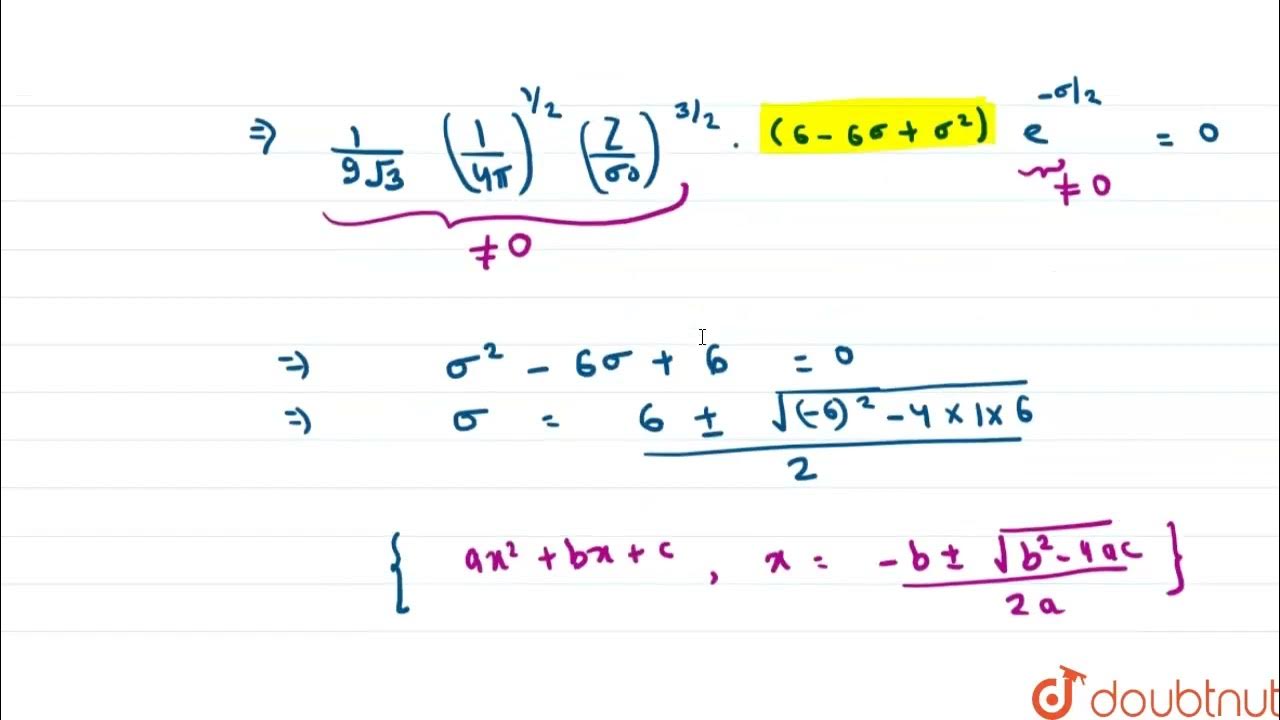 ⇒ 1/9√3 (1/4π)^1/2 (Z/σ0)^3/2 . (6 - 6σ + σ²) e^-σ/2 = 0
≠ 0
≠ 0
⇒ σ² - 6σ + 6 = 0
⇒ σ = 6 ± √(-6)² - 4 × 1 × 6 / 2
{ ax² + bx + c , x = -b ± √b² - 4ac / 2a }
doubtnut